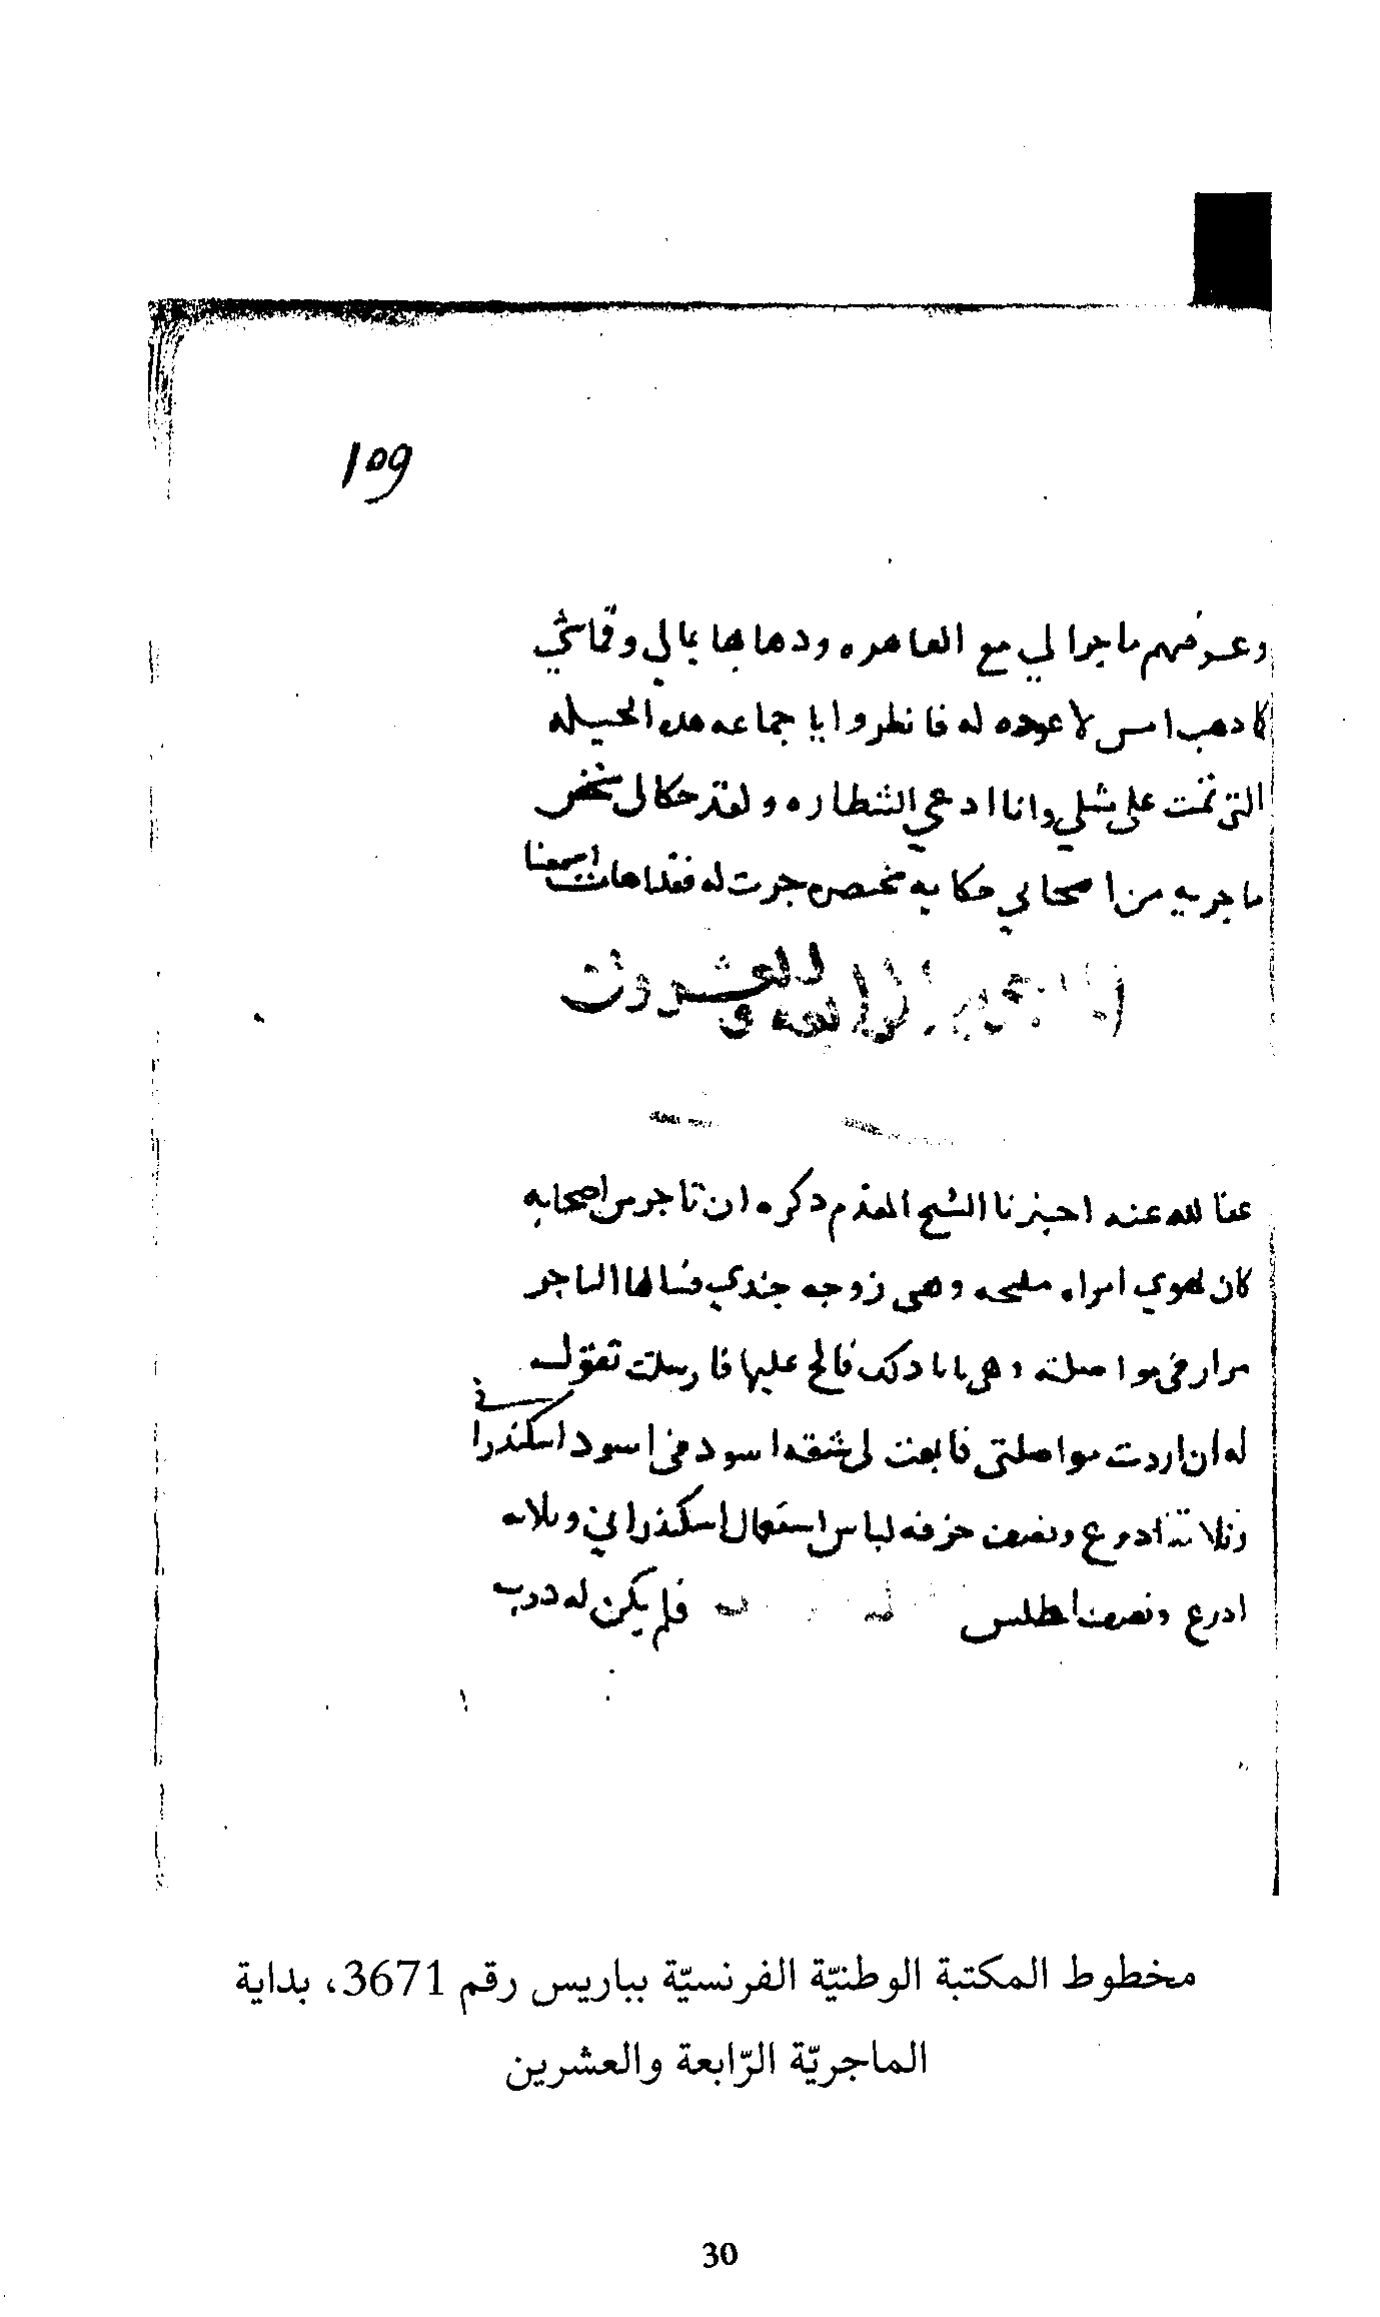 109
وعرفهم ماجرا لي مع العاهره ودهابها بمالي وقماشي
كما دهب امس لا عوده له فانظروا يا جماعه هده الحيله
التي تمت على مثلي وانا ادعي الشطاره ولقد حكا لي شخص
ما جريه من اصحابي حكايه مختصره جرت له فقلنا هات اسمعنا
الرابعه والعشرون
عفا الله عنه اخبرنا الشيخ المقدم دكره ان تاجر من اصحابه
كان يهوي امراه مليحه وهي زوجه جندي فسالها التاجر
مرار في مواصلته وهي تابا دلك فالح عليها فارسلت تقول
له ان اردت مواصلتي فابعت لي شقه اسود في اسود اسكندراني
وتلاتة ادرع ونصف خرقه لباس استعمال اسكندراني وتلاته
ادرع ونصف اطلس فلم يكن له درب
مخطوط المكتبة الوطنيّة الفرنسيّة بباريس رقم 3671، بداية
الماجريّة الرّابعة والعشرين
30